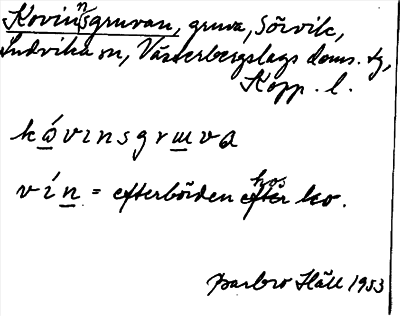 Kovinnsgruvan, gruva, Sörvik,
Ludvika sn, Västerbergslags doms. tg,
Kopp. l.
kóvinsgrɯva
vín = efterbörden hos efter ko.
Barbro Häll 1953